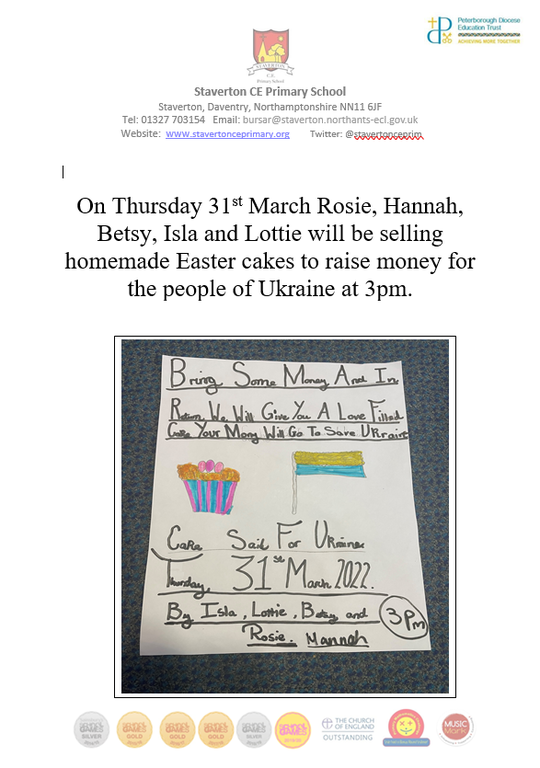 Peterborough Diocese
Education Trust
ACHIEVING MORE TOGETHER
STAVERTON
C.E.
Primary School
Staverton CE Primary School
Staverton, Daventry, Northamptonshire NN11 6JF
Tel: 01327 703154 Email: bursar@staverton.northants-ecl.gov.uk
Website: www.stavertonceprimary.org Twitter: @stavertonceprim
On Thursday 31st March Rosie, Hannah,
Betsy, Isla and Lottie will be selling
homemade Easter cakes to raise money for
the people of Ukraine at 3pm.
Bring Some Money And In
Return We Will Give You A Love Filled
Cake Your Mony Will Go To Save Ukraine
Cake Sail For Ukraine
Thursday, 31st March 2022.
By Isla, Lottie, Betsy and
Rosie. Hannah
3pm
GAMES SILVER
GAMES GOLD
GAMES GOLD
GAMES GOLD
GAMES SILVER
GAMES
THE CHURCH
OF ENGLAND
OUTSTANDING
MUSIC
Mark